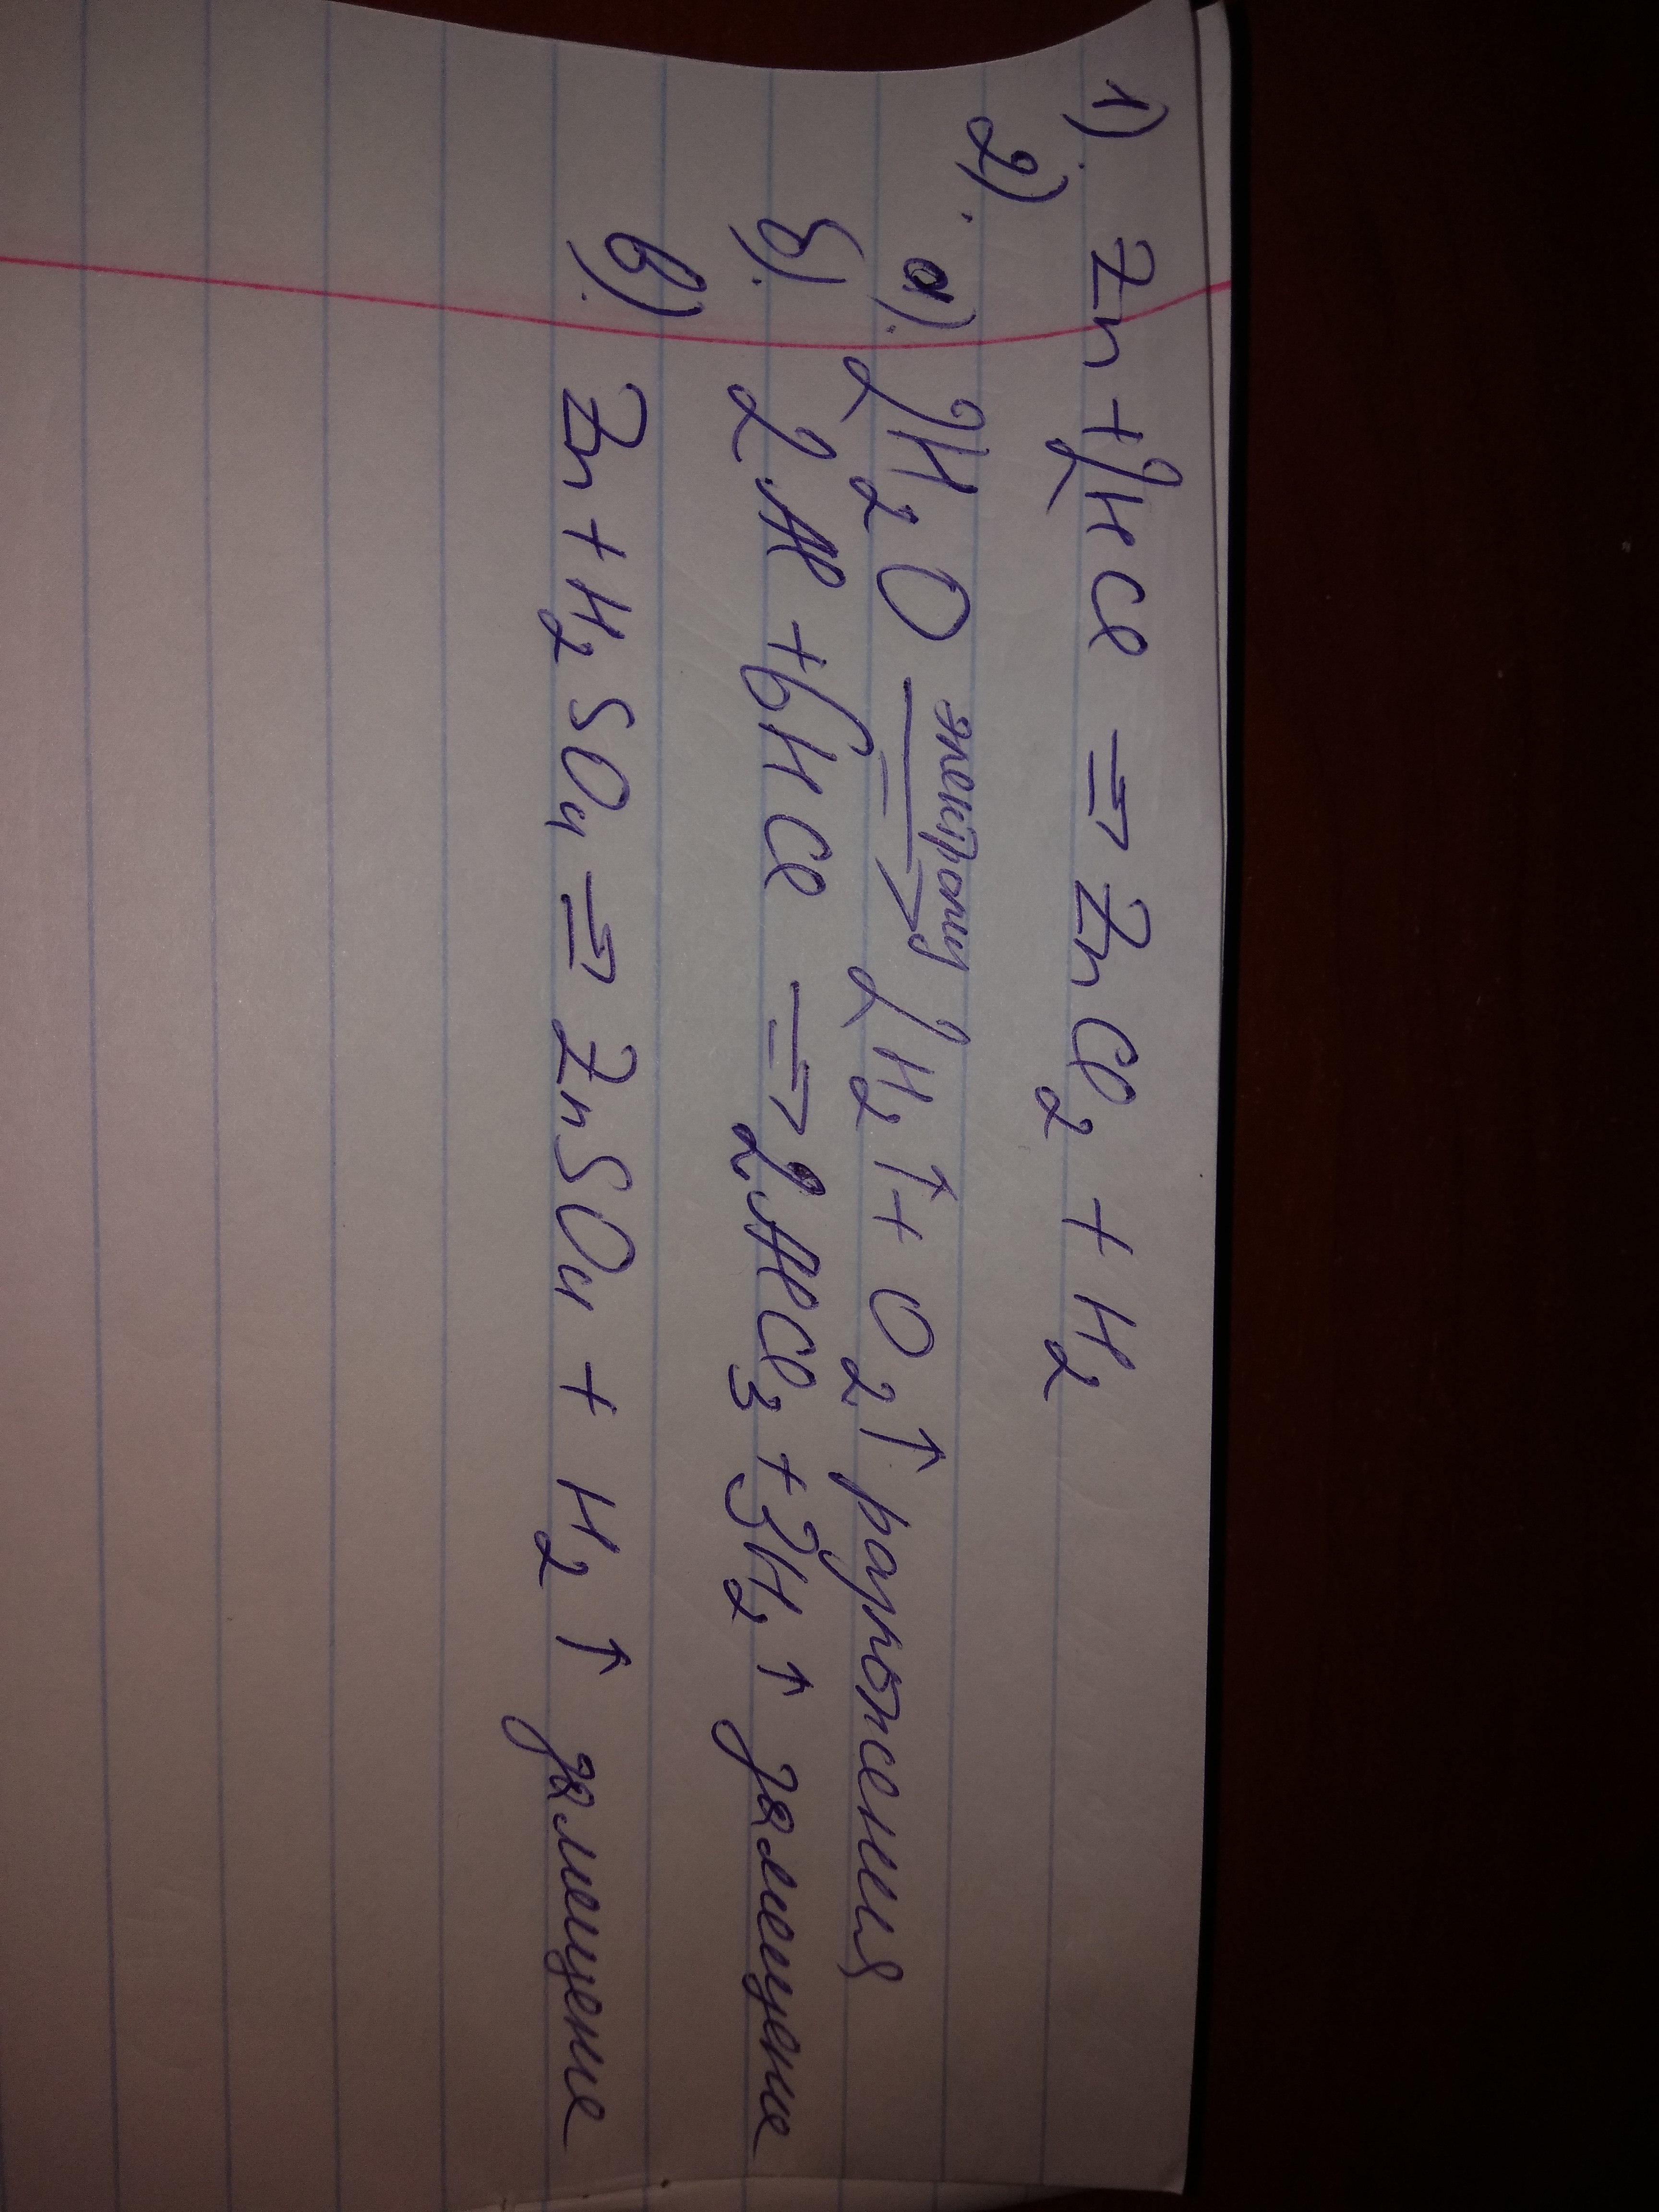 1). Zn + 2HCl => ZnCl₂ + H₂
2).
а). 2H₂O электролиз 2H₂↑ + O₂↑ разложения
б). 2Al + 6HCl => 2AlCl₃ + 3H₂↑ замещение
в). Zn + H₂SO₄ => ZnSO₄ + H₂↑ замещение